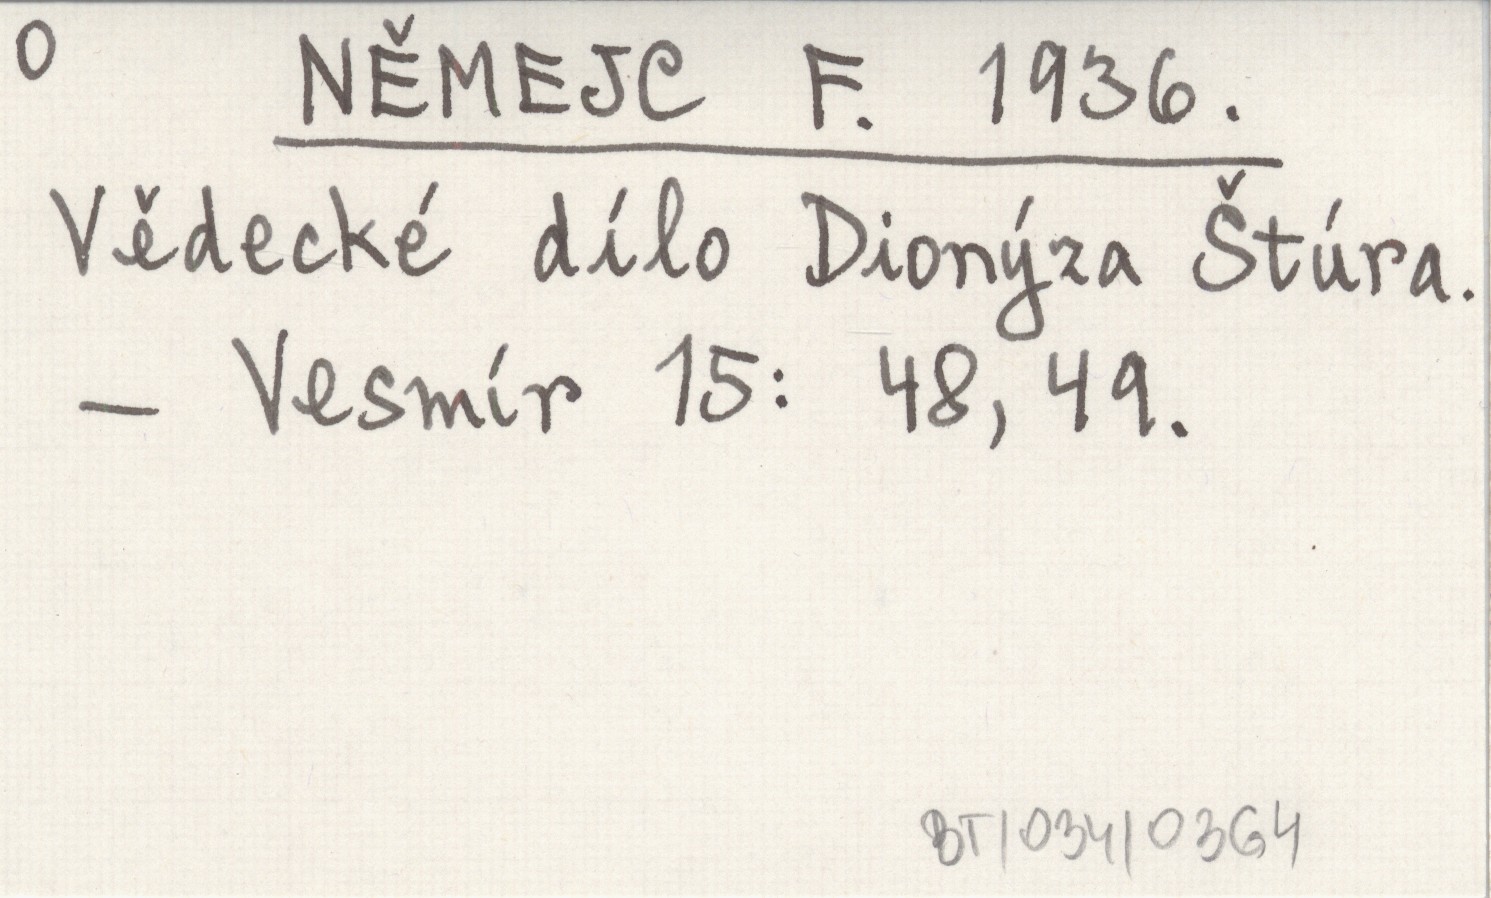 O
NĚMEJC F. 1936.
Vědecké dílo Dionýza Štúra.
— Vesmír 15: 48, 49.
BT/034/0364